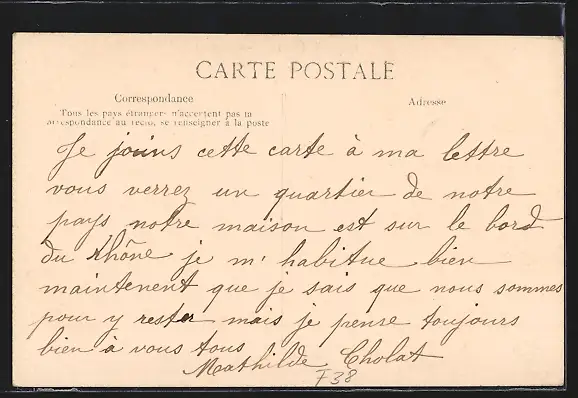 CARTE POSTALE
Correspondance
Adresse
Tous les pays étrangers n'acceptent pas la
correspondance au recto, se renseigner à la poste
Je joins cette carte à ma lettre
vous verrez un quartier de notre
pays notre maison est sur le bord
du Rhône je m'habitue bien
maintenent que je sais que nous sommes
pour y rester mais je pense toujours
bien à vous tous
Mathilde Cholat
F38